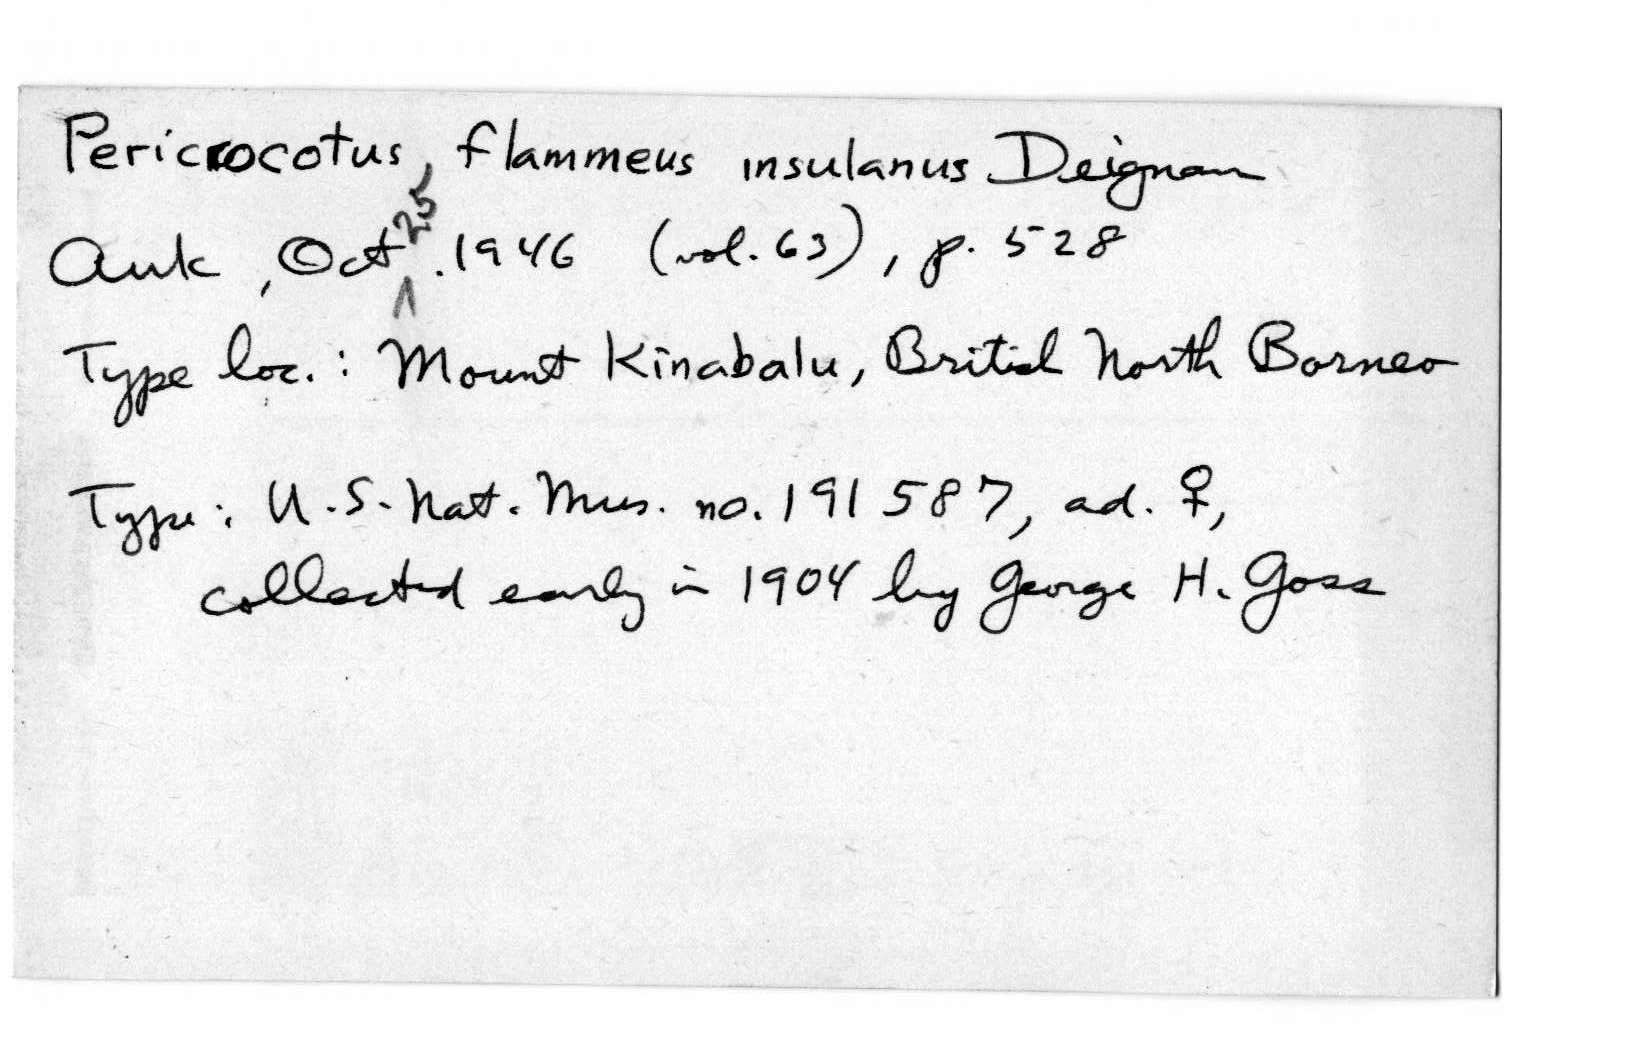 Pericrocotus flammeus insulanus Deignan
Auk, Oct 25, 1946 (vol. 63), p. 528
Type loc.: Mount Kinabalu, British North Borneo
Type: U.S. Nat. Mus. no. 191587, ad. ♀,
collected early in 1904 by George H. Goss